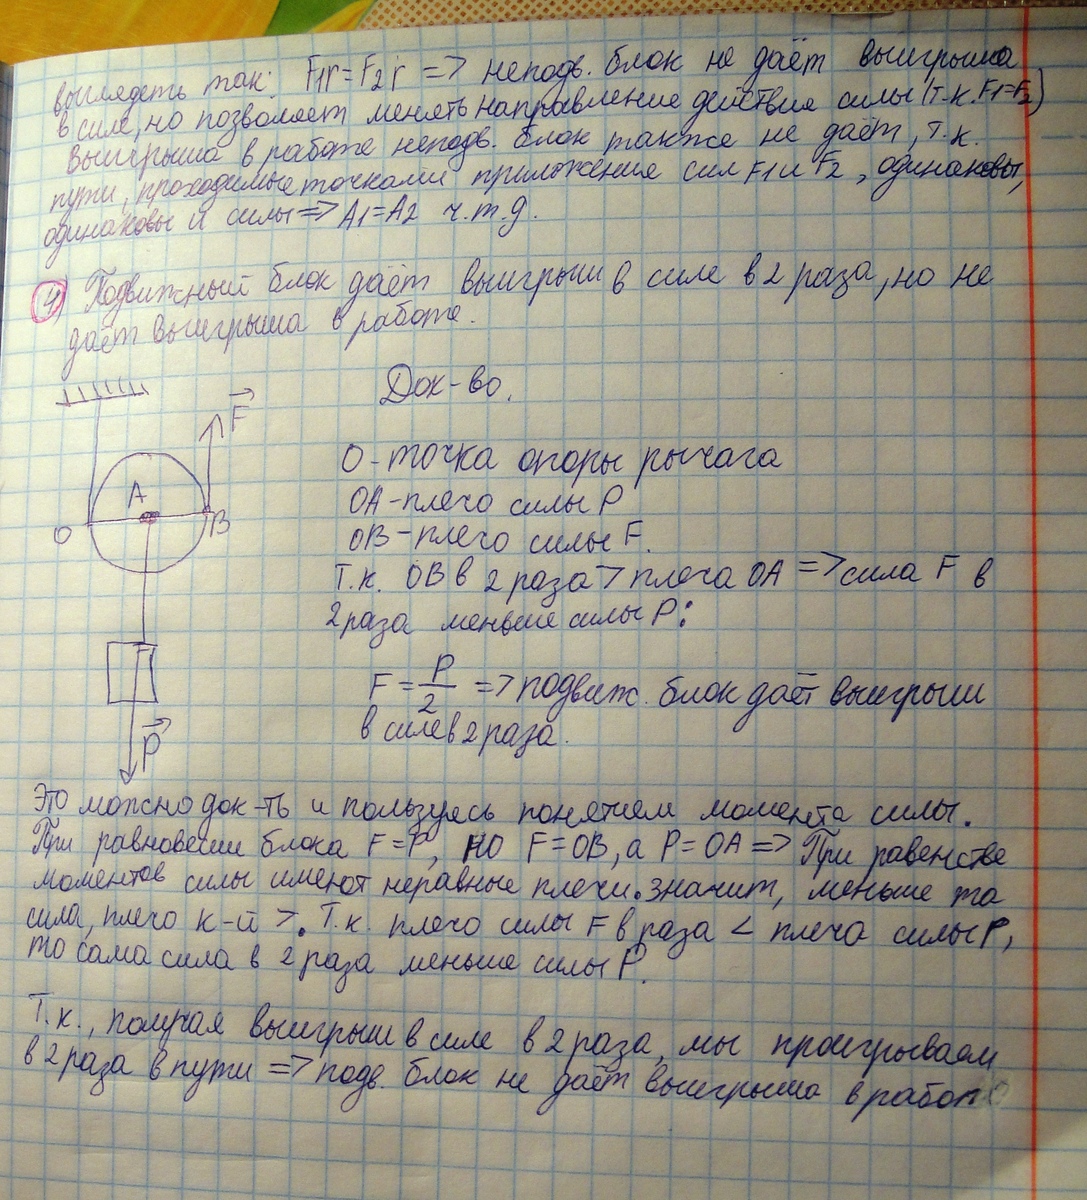 выглядеть так: F1r=F2r => неподв. блок не даёт выигрыша
в силе, но позволяет менять направление действия силы (т.к. F1=F2)
Выигрыша в работе неподв. блок также не даёт, т.к.
пути, проходимые точками приложения сил F1 и F2, одинаковы,
одинаковы и силы => A1=A2 ч.т.д.
4) Подвижный блок даёт выигрыш в силе в 2 раза, но не
даёт выигрыша в работе.
Док-во.
F
A
O
B
P
O-точка опоры рычага
OA-плечо силы P
OB-плечо силы F.
Т.к. OB в 2 раза > плеча OA => сила F в
2 раза меньше силы P:
F = P/2 => подвиж. блок даёт выигрыш
в силе в 2 раза.
Это можно док-ть и пользуясь понятием момента силы.
При равновесии блока F=P, но F=OB, а P=OA => При равенстве
моментов силы имеют неравные плечи. значит, меньше та
сила, плечо к-й >. Т.к. плечо силы F в раза < плеча силы P,
то сама сила в 2 раза меньше силы P.
Т.к., получая выигрыш в силе в 2 раза, мы проигрываем
в 2 раза в пути => подв. блок не даёт выигрыша в работе